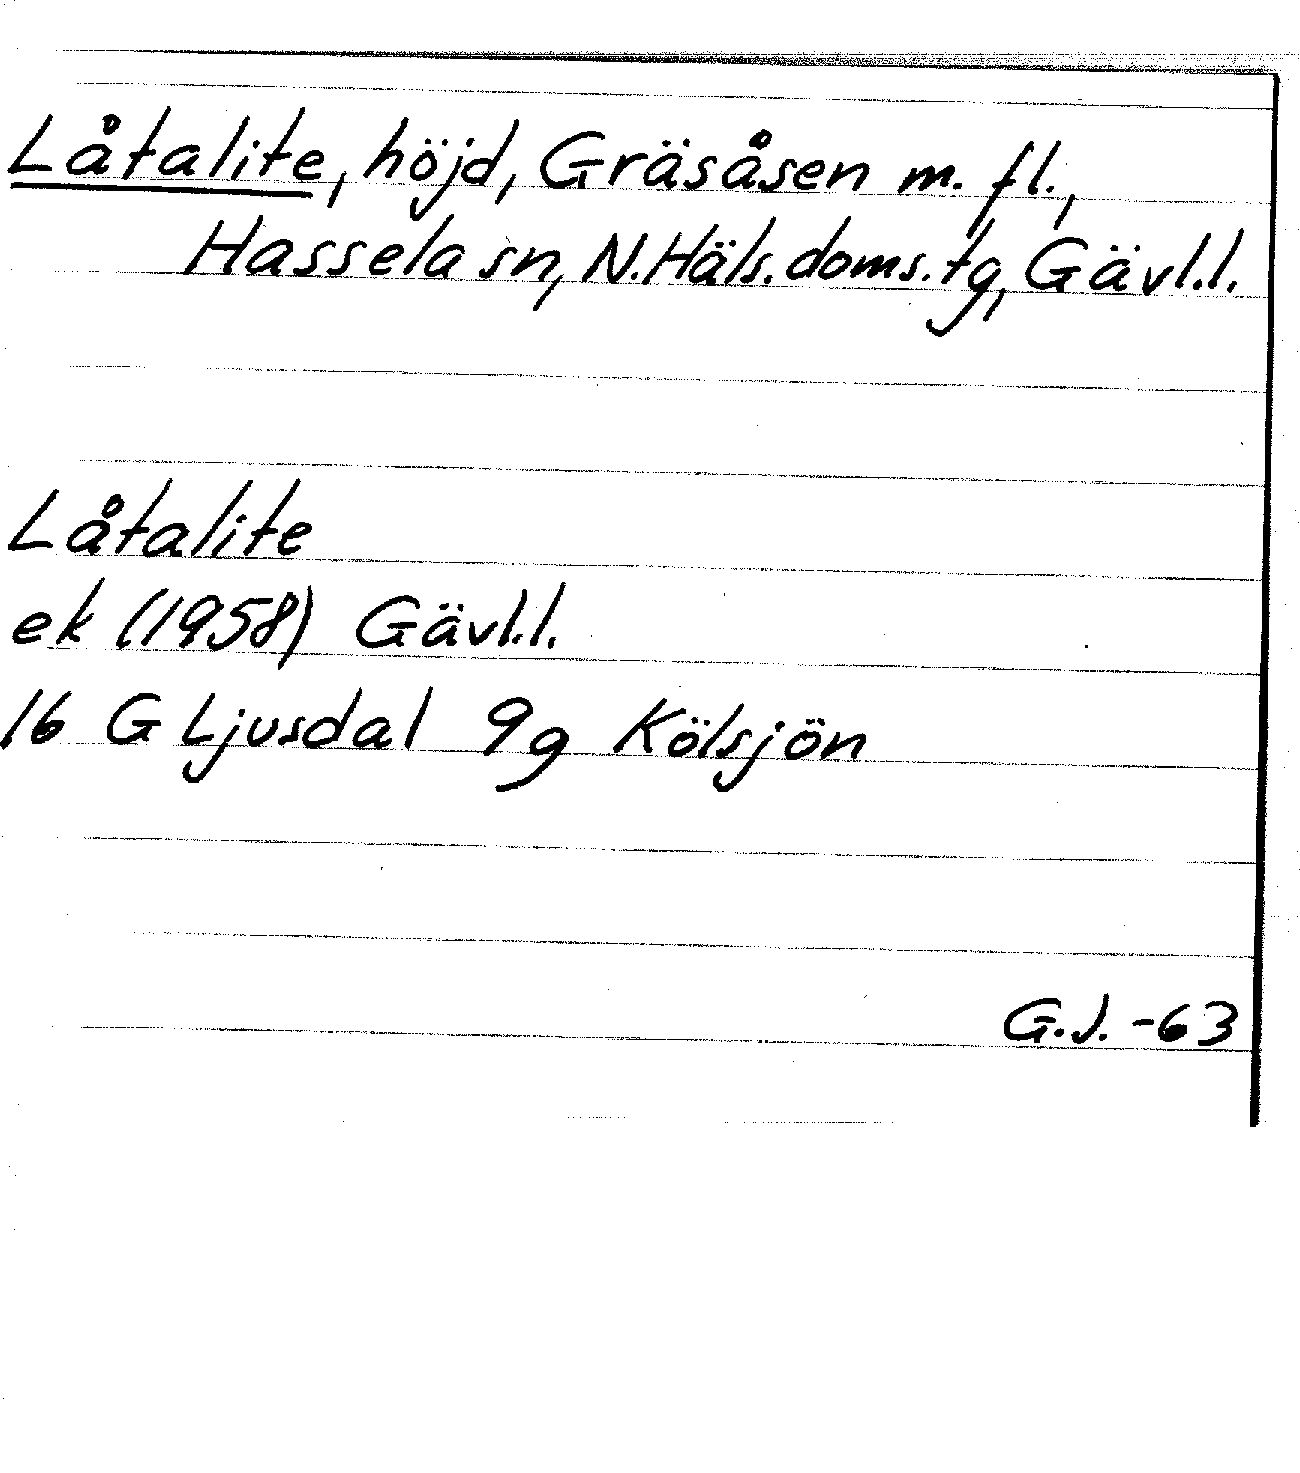 Låtalite, höjd, Gräsåsen m. fl.,
Hassela sn, N.Häls.doms.tg, Gävl.l.
Låtalite
ek (1958) Gävl.l.
16 G Ljusdal 9g Kölsjön
G.J. -63